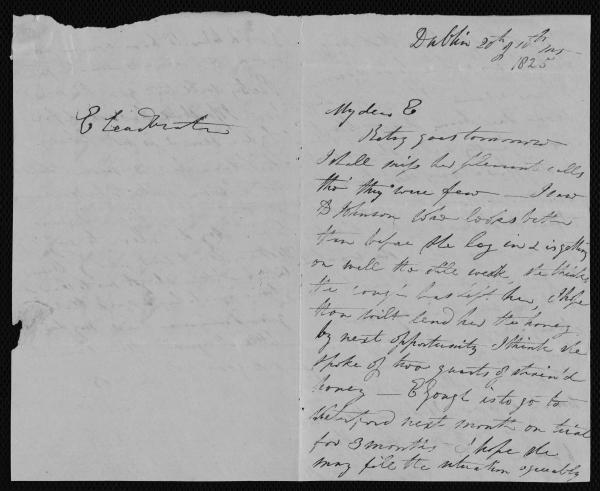 E Leadbeater
Dublin 20th of 10th mo
1825
My dear E
Betsy goes tomorrow
I shall miss her pleasant calls
tho' they were few — I saw
D Johnson who looks better
than before she lay in & is getting
on well tho still weak, she thinks
the cough has left her, I hope
thou wilt send her the honey
by next opportunity I think she
spoke of two quarts of strain'd
honey — E Gough is to go to
Waterford next month on trial
for 3 months I hope she
may fill the situation agreeably